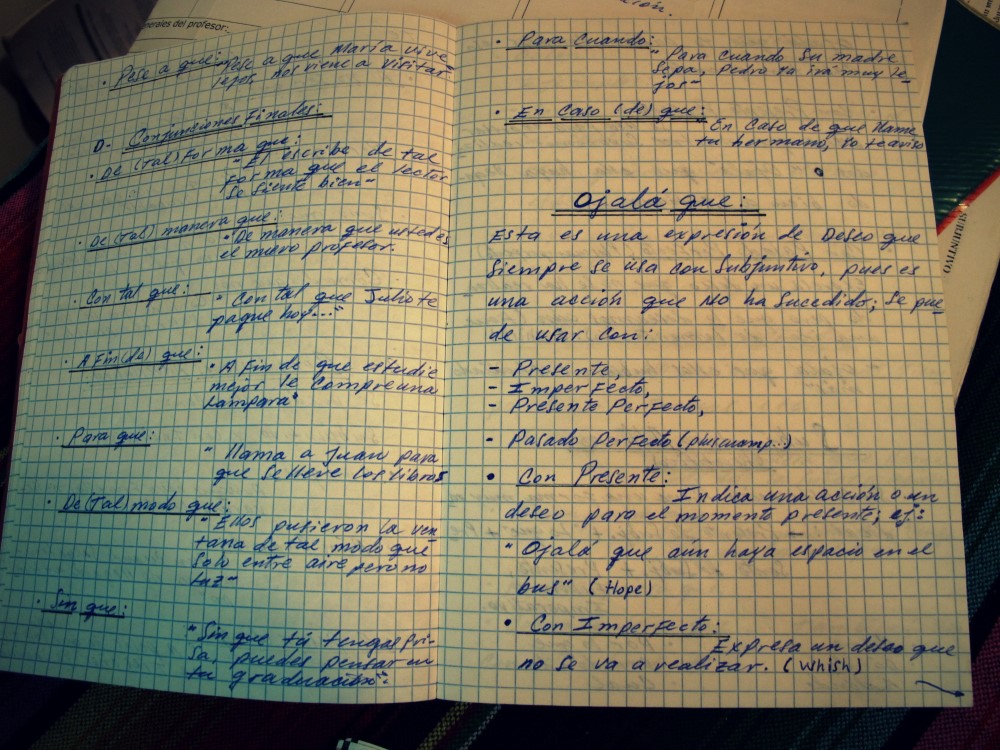 nerales del profesor:
ción.
· Pese a que: "Pese a que María vive
lejos, nos viene a visitar"
D- Conjunciones Finales:
· De (tal) Forma que:
"El escribe de tal
forma que el lector
se siente bien"
· De (tal) manera que:
"De manera que usted es
el nuevo profesor.
· Con tal que:
"Con tal que Julio te
pague hoy..."
· A Fin (de) que:
"A Fin de que estudie
mejor le compre una
Lampara"
· Para que:
"llama a Juan para
que se lleve los libros
· De (Tal) modo que:
"Ellos pusieron la ven
tana de tal modo que
solo entre aire pero no
luz"
· Sin que:
"Sin que tú tengas pri-
sa, puedes pensar en
tu graduación".
· Para Cuando:
"Para cuando su madre
sepa, Pedro ya irá muy le-
jos"
· En Caso (de) que:
"En caso de que llame
tu hermano, yo te aviso
SUBJUNTIVO
Ojalá que:
Esta es una expresión de Deseo que
siempre se usa con Subjuntivo, pues es
una acción que NO ha sucedido; se pue-
de usar con:
- Presente,
- Imperfecto,
- Presente Perfecto,
- Pasado Perfecto (pluscuamp...)
• Con Presente:
Indica una acción o un
deseo para el momento presente; ej:
"Ojalá que aún haya espacio en el
bus" (Hope)
• Con Imperfecto:
Expresa un deseo que
no se va a realizar. (Whish)